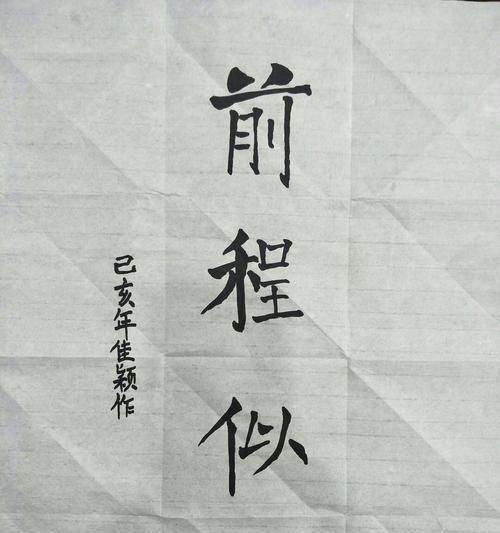 前程似
己亥年佳颖作